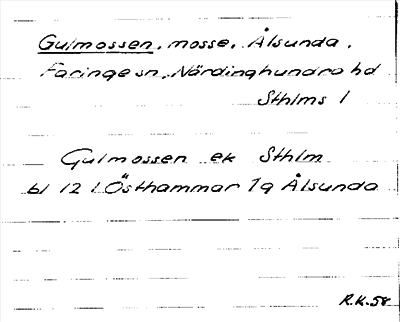 Gulmossen, mosse, Ålsunda,
Faringe sn, Närdinghundra hd
Sthlms l
Gulmossen ek Sthlm
bl 12 I. Östhammar 7q Ålsunda
R.K.58